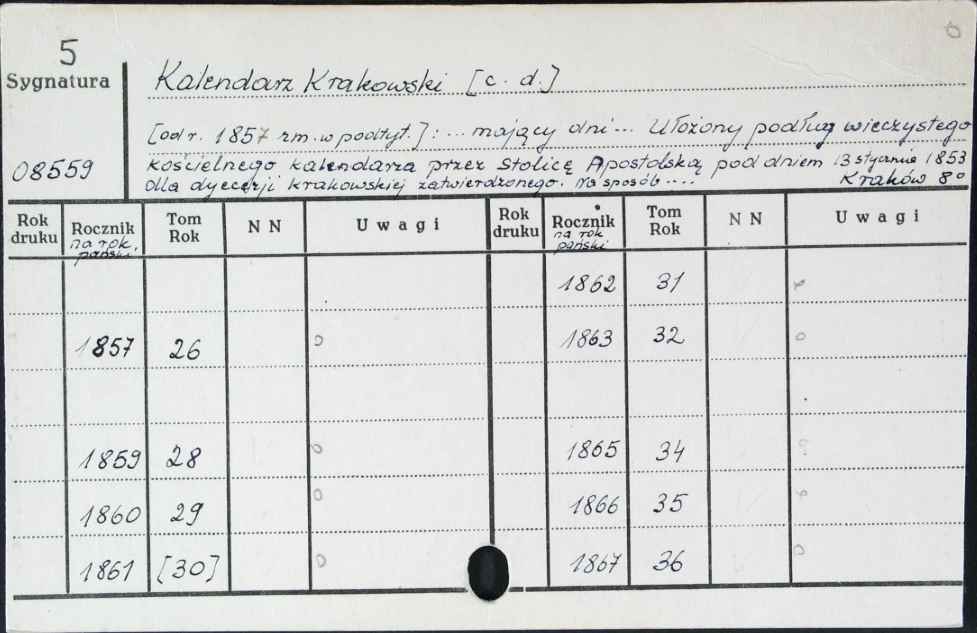 5
Sygnatura
Kalendarz Krakowski [c. d.]
08559
[od r. 1857 zm. w podtyt.]: ... mający dni ... Ułożony podług wieczystego
kościelnego kalendarza przez Stolicę Apostolską pod dniem 13 stycznia 1853
dla dyecezji krakowskiej zatwierdzonego. Na sposób .... Kraków 8°
Rok druku Rocznik na rok pański Tom Rok N N Uwagi Rok druku Rocznik na rok pański Tom Rok N N Uwagi
1862 31
1857 26 0 1863 32 0
1859 28 0 1865 34
1860 29 0 1866 35
1861 [30] 0 1867 36 0